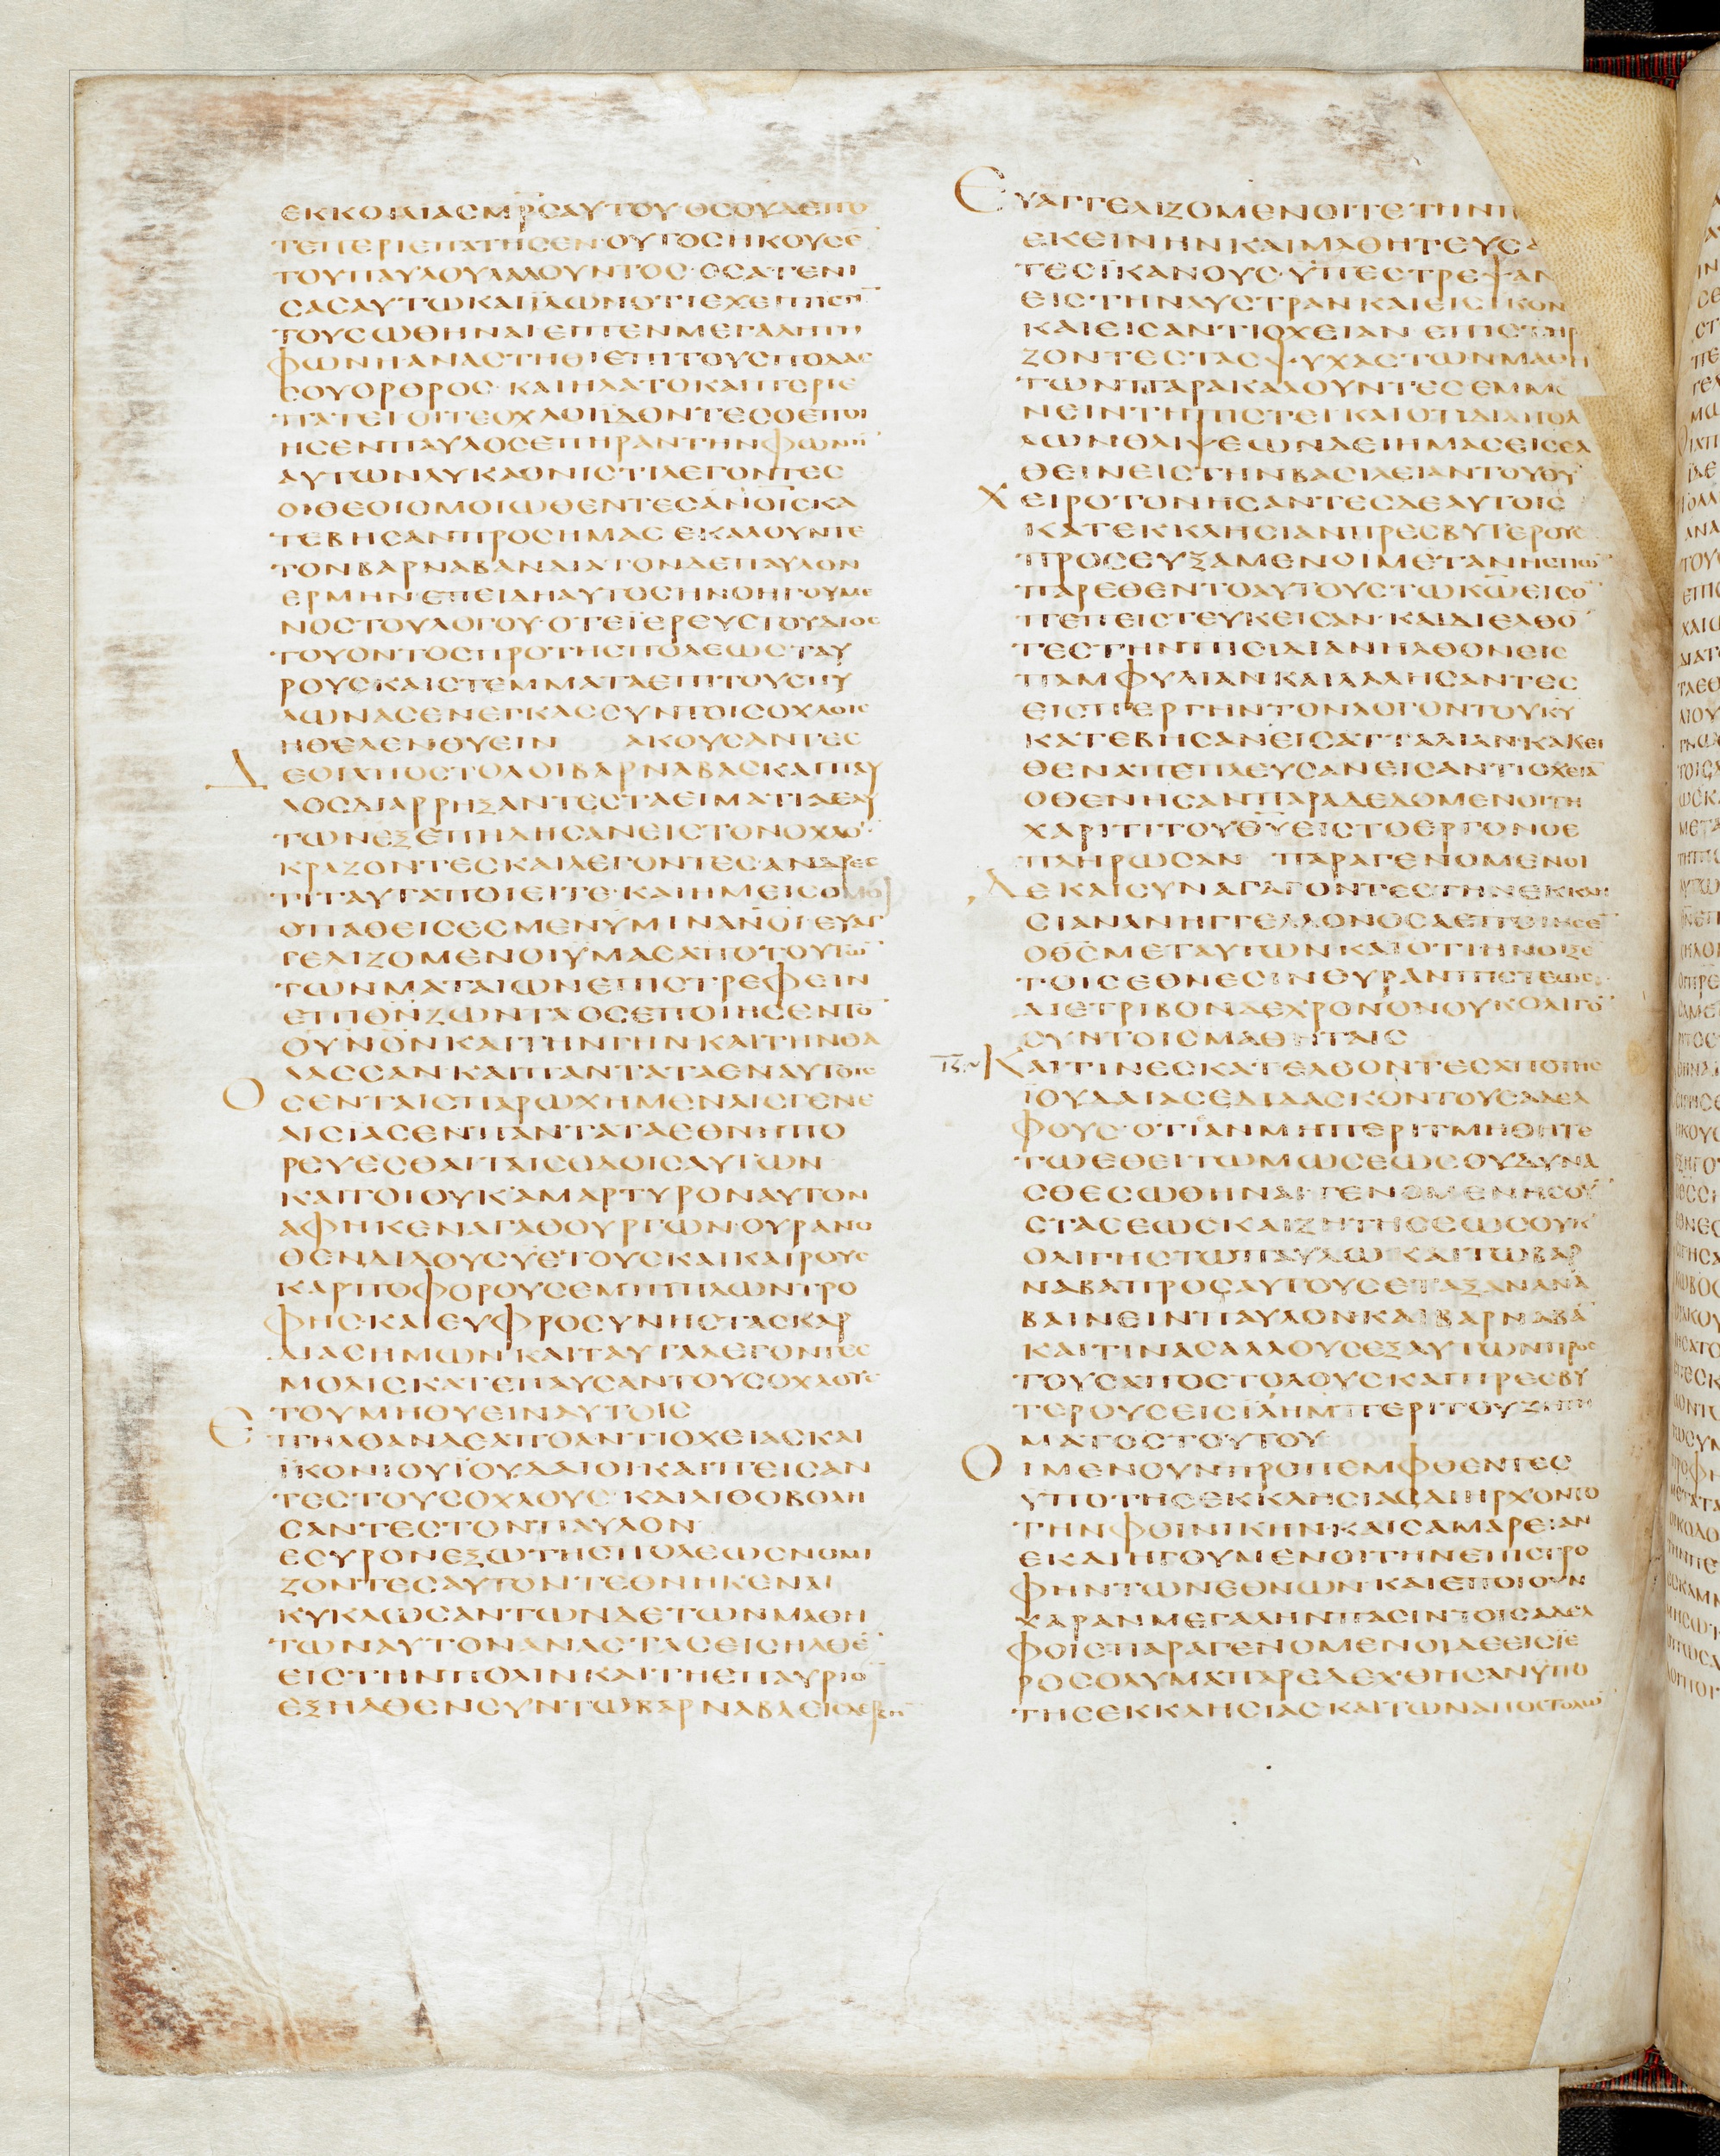 ΕΚΚΟΙΛΙΑΣ ΜΡΣ ΑΥΤΟΥ ΟΣ ΟΥΔΕΠΟ
ΤΕ ΠΕΡΙΕΠΑΤΗΣΕΝ· ΟΥΤΟΣ ΗΚΟΥΣΕ
ΤΟΥ ΠΑΥΛΟΥ ΛΑΛΟΥΝΤΟΣ· ΟΣ ΑΤΕΝΙ
ΣΑΣ ΑΥΤΩ ΚΑΙ ΪΔΩΝ ΟΤΙ ΕΧΕΙ ΠΙΣΤΙ̅
ΤΟΥ ΣΩΘΗΝΑΙ ΕΙΠΕΝ ΜΕΓΑΛΗ ΤΗ
ΦΩΝΗ ΑΝΑΣΤΗΘΙ ΕΠΙ ΤΟΥΣ ΠΟΔΑΣ
ΣΟΥ ΟΡΘΟΣ· ΚΑΙ ΗΛΑΤΟ ΚΑΙ ΠΕΡΙΕ
ΠΑΤΕΙ ΟΙ ΤΕ ΟΧΛΟΙ ΪΔΟΝΤΕΣ Ο ΕΠΟΙ
ΗΣΕΝ ΠΑΥΛΟΣ ΕΠΗΡΑΝ ΤΗΝ ΦΩΝΗ̅
ΑΥΤΩΝ ΛΥΚΑΟΝΙΣΤΙ ΛΕΓΟΝΤΕΣ
ΟΙ ΘΕΟΙ ΟΜΟΙΩΘΕΝΤΕΣ ΑΝΟΙΣ ΚΑ
ΤΕΒΗΣΑΝ ΠΡΟΣ ΗΜΑΣ ΕΚΑΛΟΥΝ ΤΕ
ΤΟΝ ΒΑΡΝΑΒΑΝ ΔΙΑ ΤΟΝ ΔΕ ΠΑΥΛΟΝ
ΕΡΜΗΝ· ΕΠΕΙΔΗ ΑΥΤΟΣ ΗΝ Ο ΗΓΟΥΜΕ
ΝΟΣ ΤΟΥ ΛΟΓΟΥ· Ο ΤΕ ΪΕΡΕΥΣ ΤΟΥ ΔΙΟΣ
ΤΟΥ ΟΝΤΟΣ ΠΡΟ ΤΗΣ ΠΟΛΕΩΣ ΤΑΥ
ΡΟΥΣ ΚΑΙ ΣΤΕΜΜΑΤΑ ΕΠΙ ΤΟΥΣ ΠΥ
ΛΩΝΑΣ ΕΝΕΓΚΑΣ ΣΥΝ ΤΟΙΣ ΟΧΛΟΙΣ
ΗΘΕΛΕΝ ΘΥΕΙΝ ΑΚΟΥΣΑΝΤΕΣ
ΔΕ ΟΙ ΑΠΟΣΤΟΛΟΙ ΒΑΡΝΑΒΑΣ ΚΑΙ ΠΑΥ
ΛΟΣ ΔΙΑΡΡΗΞΑΝΤΕΣ ΤΑ ΕΙΜΑΤΙΑ ΕΑΥ
ΤΩΝ ΕΞΕΠΗΔΗΣΑΝ ΕΙΣ ΤΟΝ ΟΧΛΟ̅
ΚΡΑΖΟΝΤΕΣ ΚΑΙ ΛΕΓΟΝΤΕΣ· ΑΝΔΡΕΣ
ΤΙ ΤΑΥΤΑ ΠΟΙΕΙΤΕ· ΚΑΙ ΗΜΕΙΣ ΟΜΟΙ
ΟΠΑΘΕΙΣ ΕΣΜΕΝ ΥΜΙΝ ΑΝΟΙ· ΕΥΑΓ
ΓΕΛΙΖΟΜΕΝΟΙ ΥΜΑΣ ΑΠΟ ΤΟΥΤΩ̅
ΤΩΝ ΜΑΤΑΙΩΝ ΕΠΙΣΤΡΕΦΕΙΝ
ΕΠΙ ΘΝ ΖΩΝΤΑ ΟΣ ΕΠΟΙΗΣΕΝ ΤΟ̅
ΟΥΝΟΝ ΚΑΙ ΤΗΝ ΓΗΝ· ΚΑΙ ΤΗΝ ΘΑ
ΛΑΣΣΑΝ· ΚΑΙ ΠΑΝΤΑ ΤΑ ΕΝ ΑΥΤΟΙΣ
ΟΣ ΕΝ ΤΑΙΣ ΠΑΡΩΧΗΜΕΝΑΙΣ ΓΕΝΕ
ΑΙΣ ΙΑΣΕΝ ΠΑΝΤΑ ΤΑ ΕΘΝΗ ΠΟ
ΡΕΥΕΣΘΑΙ ΤΑΙΣ ΟΔΟΙΣ ΑΥΤΩΝ
ΚΑΙΤΟΙ ΟΥΚ ΑΜΑΡΤΥΡΟΝ ΑΥΤΟΝ
ΑΦΗΚΕΝ ΑΓΑΘΟΥΡΓΩΝ· ΟΥΡΑΝΟ
ΘΕΝ ΔΙΔΟΥΣ ΥΕΤΟΥΣ ΚΑΙ ΚΑΙΡΟΥΣ
ΚΑΡΠΟΦΟΡΟΥΣ ΕΜΠΙΠΛΩΝ ΤΡΟ
ΦΗΣ· ΚΑΙ ΕΥΦΡΟΣΥΝΗΣ ΤΑΣ ΚΑΡ
ΔΙΑΣ ΗΜΩΝ· ΚΑΙ ΤΑΥΤΑ ΛΕΓΟΝΤΕΣ
ΜΟΛΙΣ ΚΑΤΕΠΑΥΣΑΝ ΤΟΥΣ ΟΧΛΟΥΣ
ΤΟΥ ΜΗ ΘΥΕΙΝ ΑΥΤΟΙΣ
ΕΠΗΛΘΑΝ ΔΕ ΑΠΟ ΑΝΤΙΟΧΕΙΑΣ ΚΑΙ
ΪΚΟΝΙΟΥ ΪΟΥΔΑΙΟΙ· ΚΑΙ ΠΕΙΣΑΝ
ΤΕΣ ΤΟΥΣ ΟΧΛΟΥΣ· ΚΑΙ ΛΙΘΟΒΟΛΗ
ΣΑΝΤΕΣ ΤΟΝ ΠΑΥΛΟΝ
ΕΣΥΡΟΝ ΕΞΩ ΤΗΣ ΠΟΛΕΩΣ ΝΟΜΙ
ΖΟΝΤΕΣ ΑΥΤΟΝ ΤΕΘΝΗΚΕΝΑΙ
ΚΥΚΛΩΣΑΝΤΩΝ ΔΕ ΤΩΝ ΜΑΘΗ
ΤΩΝ ΑΥΤΟΝ ΑΝΑΣΤΑΣ ΕΙΣΗΛΘΕ̅
ΕΙΣ ΤΗΝ ΠΟΛΙΝ ΚΑΙ ΤΗ ΕΠΑΥΡΙΟ̅
ΕΞΗΛΘΕΝ ΣΥΝ ΤΩ ΒΑΡΝΑΒΑ ΕΙΣ ΔΕΡΒΗ̅
ΕΥΑΓΓΕΛΙΖΟΜΕΝΟΙ ΤΕ ΤΗΝ Π
ΕΚΕΙΝΗΝ ΚΑΙ ΜΑΘΗΤΕΥΣΑ
ΤΕΣ ΪΚΑΝΟΥΣ· ΥΠΕΣΤΡΕΨΑΝ
ΕΙΣ ΤΗΝ ΛΥΣΤΡΑΝ ΚΑΙ ΕΙΣ ΙΚΟΝ
ΚΑΙ ΕΙΣ ΑΝΤΙΟΧΕΙΑΝ ΕΠΙΣΤΗΡ
ΖΟΝΤΕΣ ΤΑΣ ΨΥΧΑΣ ΤΩΝ ΜΑΘΗ
ΤΩΝ ΠΑΡΑΚΑΛΟΥΝΤΕΣ ΕΜΜΕ
ΝΕΙΝ ΤΗ ΠΙΣΤΕΙ ΚΑΙ ΟΤΙ ΔΙΑ ΠΟΛ
ΛΩΝ ΘΛΙΨΕΩΝ ΔΕΙ ΗΜΑΣ ΕΙΣΕΛ
ΘΕΙΝ ΕΙΣ ΤΗΝ ΒΑΣΙΛΕΙΑΝ ΤΟΥ ΘΥ
ΧΕΙΡΟΤΟΝΗΣΑΝΤΕΣ ΔΕ ΑΥΤΟΙΣ
ΚΑΤ ΕΚΚΛΗΣΙΑΝ ΠΡΕΣΒΥΤΕΡΟΥΣ
ΠΡΟΣΕΥΞΑΜΕΝΟΙ ΜΕΤΑ ΝΗΣΤΙΩ̅
ΠΑΡΕΘΕΝΤΟ ΑΥΤΟΥΣ ΤΩ ΚΩ ΕΙΣ Ο̅
ΠΕΠΕΙΣΤΕΥΚΕΙΣΑΝ· ΚΑΙ ΔΙΕΛΘΟ̅
ΤΕΣ ΤΗΝ ΠΙΣΙΔΙΑΝ ΗΛΘΟΝ ΕΙΣ
ΠΑΜΦΥΛΙΑΝ ΚΑΙ ΛΑΛΗΣΑΝΤΕΣ
ΕΙΣ ΠΕΡΓΗΝ ΤΟΝ ΛΟΓΟΝ ΤΟΥ ΚΥ
ΚΑΤΕΒΗΣΑΝ ΕΙΣ ΑΤΤΑΛΙΑΝ· ΚΑΚΕΙ
ΘΕΝ ΑΠΕΠΛΕΥΣΑΝ ΕΙΣ ΑΝΤΙΟΧΕΙΑ̅
ΟΘΕΝ ΗΣΑΝ ΠΑΡΑΔΕΔΟΜΕΝΟΙ ΤΗ
ΧΑΡΙΤΙ ΤΟΥ ΘΥ ΕΙΣ ΤΟ ΕΡΓΟΝ Ο Ε
ΠΛΗΡΩΣΑΝ ΠΑΡΑΓΕΝΟΜΕΝΟΙ
ΔΕ ΚΑΙ ΣΥΝΑΓΑΓΟΝΤΕΣ ΤΗΝ ΕΚΚΛΗ
ΣΙΑΝ ΑΝΗΓΓΕΛΛΟΝ ΟΣΑ ΕΠΟΙΗΣΕ̅
Ο ΘΣ ΜΕΤ ΑΥΤΩΝ ΚΑΙ ΟΤΙ ΗΝΟΙΞΕ
ΤΟΙΣ ΕΘΝΕΣΙΝ ΘΥΡΑΝ ΠΙΣΤΕΩΣ
ΔΙΕΤΡΙΒΟΝ ΔΕ ΧΡΟΝΟΝ ΟΥΚ ΟΛΙΓΟ̅
ΣΥΝ ΤΟΙΣ ΜΑΘΗΤΑΙΣ
ΚΑΙ ΤΙΝΕΣ ΚΑΤΕΛΘΟΝΤΕΣ ΑΠΟ ΤΗΣ
ΪΟΥΔΑΙΑΣ ΕΔΙΔΑΣΚΟΝ ΤΟΥΣ ΑΔΕΛ
ΦΟΥΣ· ΟΤΙ ΑΝ ΜΗ ΠΕΡΙΤΜΗΘΗΤΕ
ΤΩ ΕΘΕΙ ΤΩ ΜΩΣΕΩΣ ΟΥ ΔΥΝΑ
ΣΘΕ ΣΩΘΗΝΑΙ· ΓΕΝΟΜΕΝΗΣ ΟΥ̅
ΣΤΑΣΕΩΣ ΚΑΙ ΖΗΤΗΣΕΩΣ ΟΥΚ
ΟΛΙΓΗΣ ΤΩ ΠΑΥΛΩ ΚΑΙ ΤΩ ΒΑΡ
ΝΑΒΑ ΠΡΟΣ ΑΥΤΟΥΣ ΕΤΑΞΑΝ ΑΝΑ
ΒΑΙΝΕΙΝ ΠΑΥΛΟΝ ΚΑΙ ΒΑΡΝΑΒΑ̅
ΚΑΙ ΤΙΝΑΣ ΑΛΛΟΥΣ ΕΞ ΑΥΤΩΝ ΠΡΟΣ
ΤΟΥΣ ΑΠΟΣΤΟΛΟΥΣ ΚΑΙ ΠΡΕΣΒΥ
ΤΕΡΟΥΣ ΕΙΣ ΙΛΗΜ ΠΕΡΙ ΤΟΥ ΖΗΤΗ
ΜΑΤΟΣ ΤΟΥΤΟΥ
ΟΙ ΜΕΝ ΟΥΝ ΠΡΟΠΕΜΦΘΕΝΤΕΣ
ΥΠΟ ΤΗΣ ΕΚΚΛΗΣΙΑΣ ΔΙΗΡΧΟΝΤΟ
ΤΗΝ ΦΟΙΝΙΚΗΝ· ΚΑΙ ΣΑΜΑΡΕΙΑΝ
ΕΚΔΙΗΓΟΥΜΕΝΟΙ ΤΗΝ ΕΠΙΣΤΡΟ
ΦΗΝ ΤΩΝ ΕΘΝΩΝ· ΚΑΙ ΕΠΟΙΟΥΝ
ΧΑΡΑΝ ΜΕΓΑΛΗΝ ΠΑΣΙΝ ΤΟΙΣ ΑΔΕΛ
ΦΟΙΣ ΠΑΡΑΓΕΝΟΜΕΝΟΙ ΔΕ ΕΙΣ ΪΕ
ΡΟΣΟΛΥΜΑ ΠΑΡΕΔΕΧΘΗΣΑΝ ΥΠΟ
ΤΗΣ ΕΚΚΛΗΣΙΑΣ ΚΑΙ ΤΩΝ ΑΠΟΣΤΟΛΩ̅